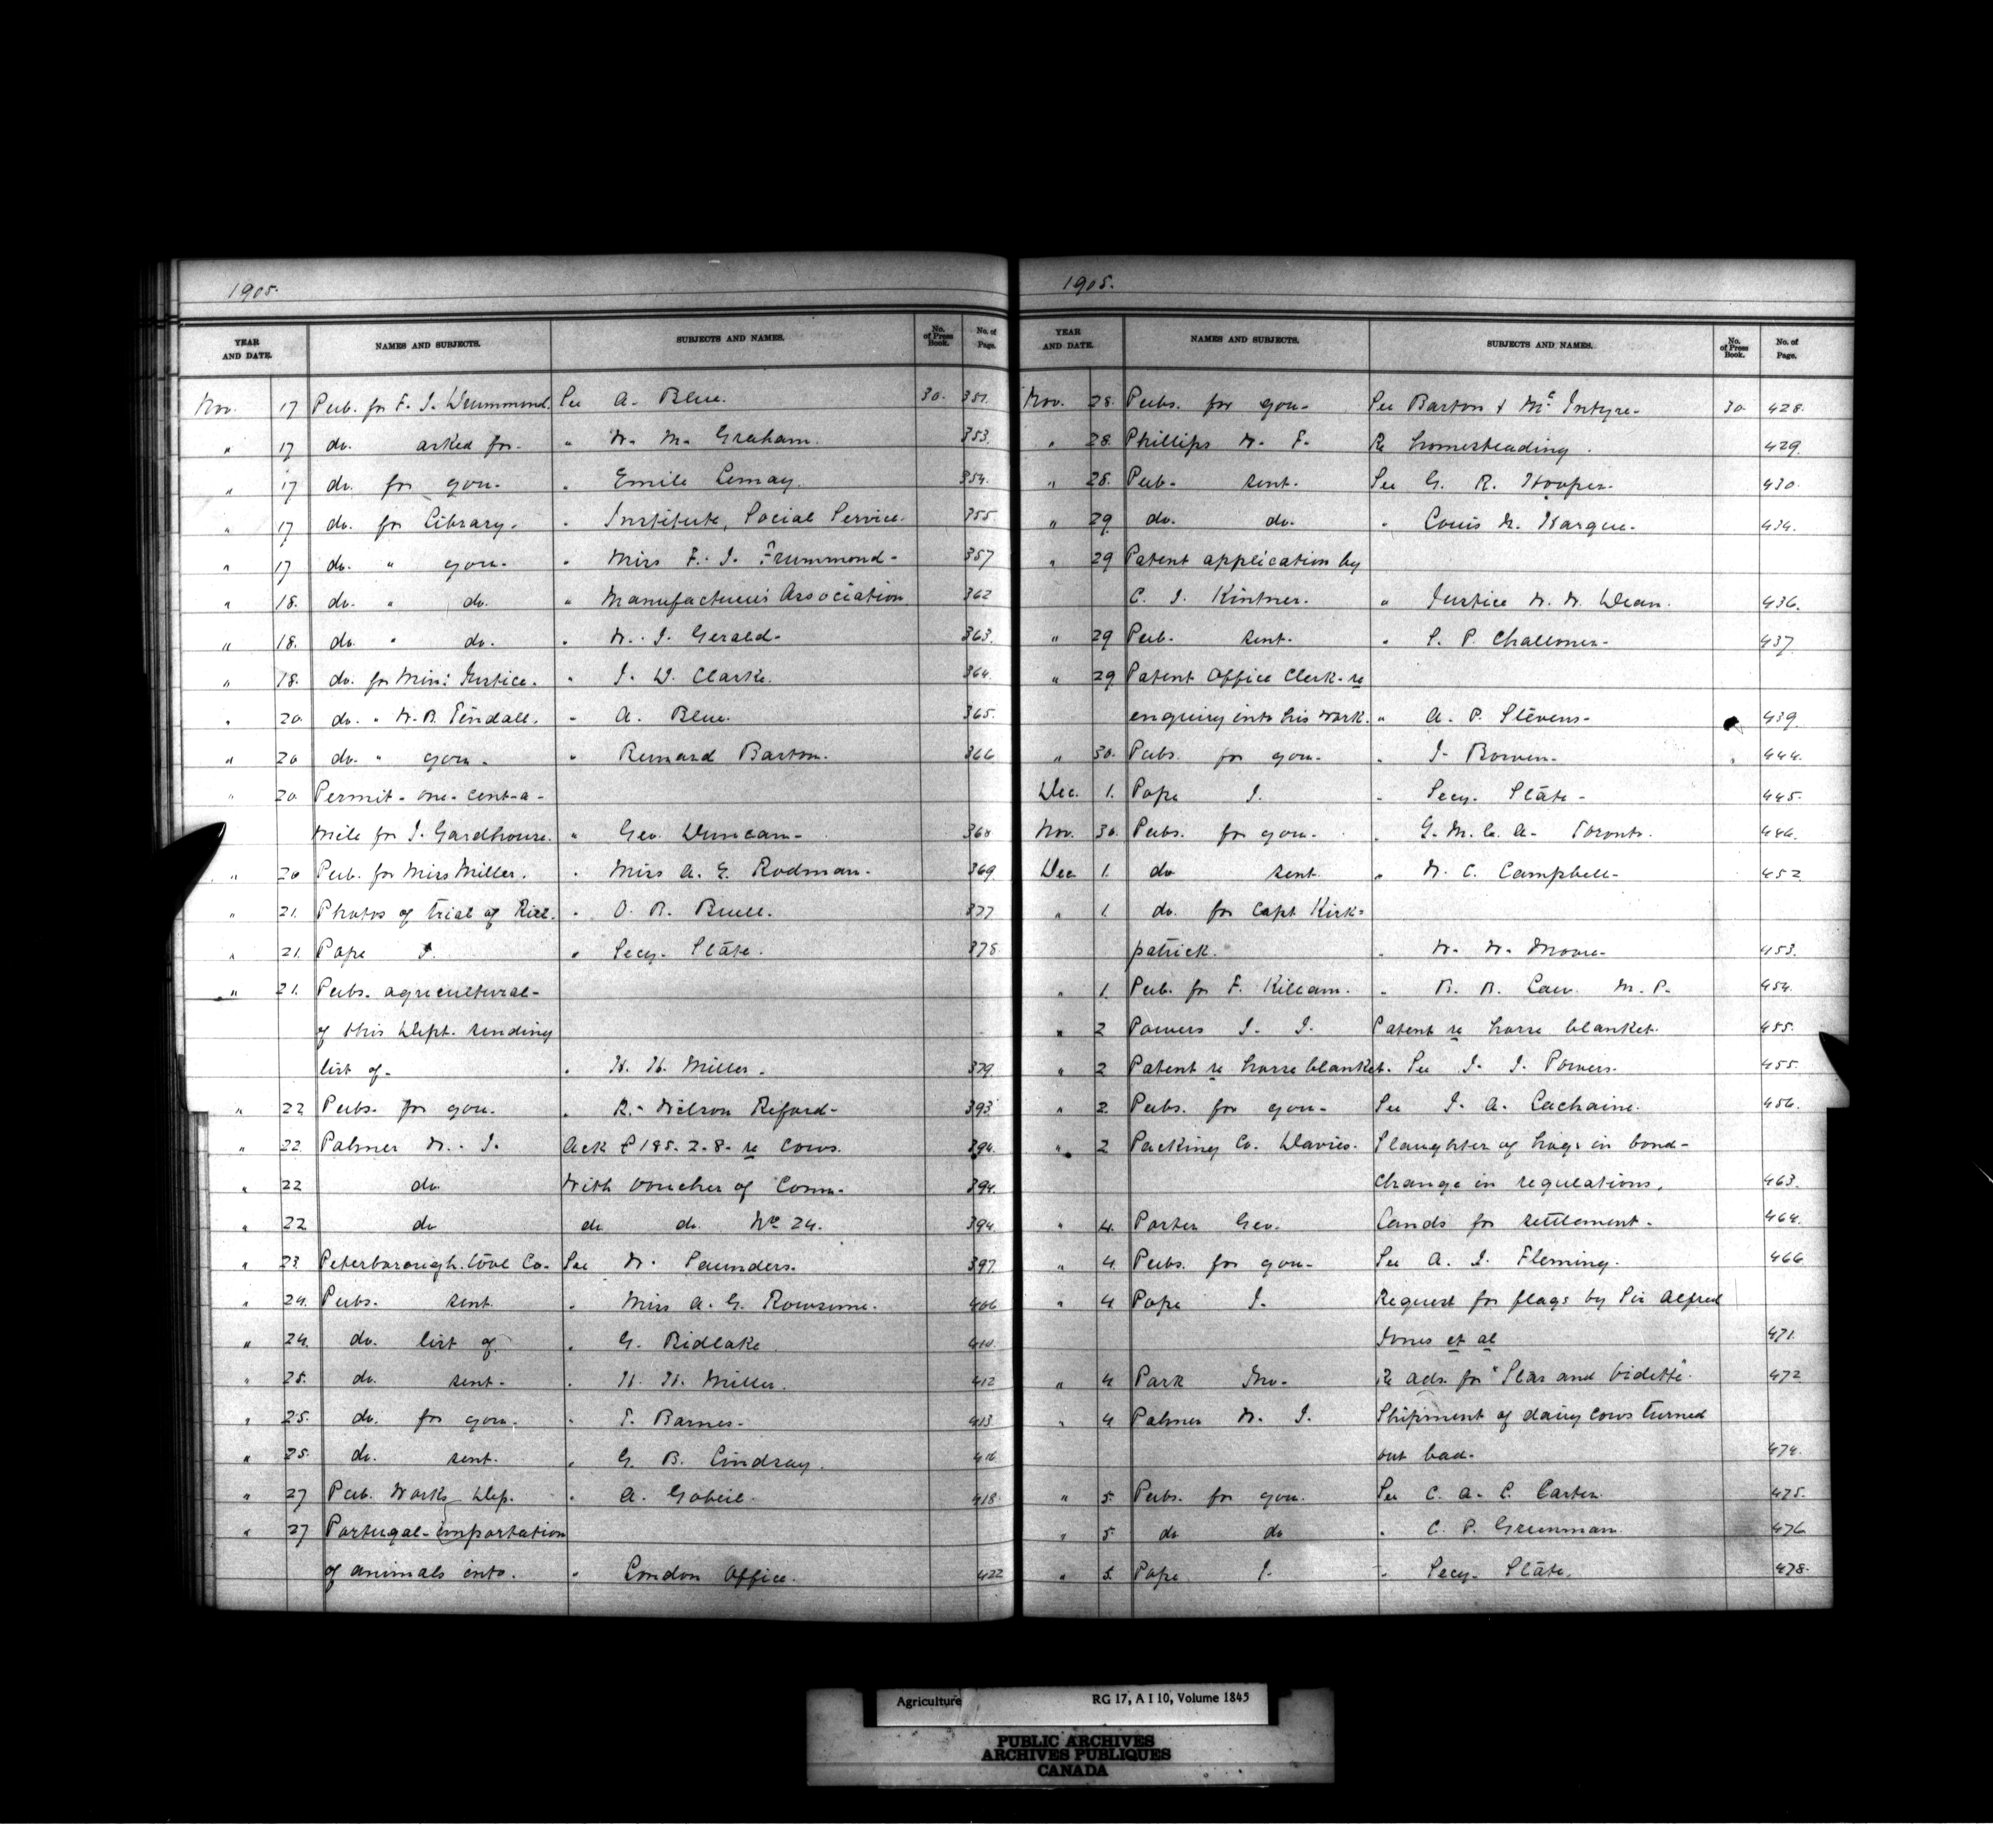 1905.
YEAR AND DATE. NAMES AND SUBJECTS. SUBJECTS AND NAMES. No. of Press Book. No. of Page.
Nov. 17 Pub. for F. J. Drummond. See A. Blue. 30. 351.
" 17 do. asked for. " W. M. Graham. 353.
" 17 do. for you. " Emile Lemay. 354.
" 17 do. for Library. " Institute, Social Service. 355.
" 17 do. " you. " Miss F. J. Drummond. 357
" 18. do. " do. " Manufacturers Association 362
" 18. do. " do. " W. J. Gerald. 363.
" 18. do. for Min: Justice. " J. D. Clarke. 364.
" 20 do. " W. B. Tindall. " A. Blue. 365.
" 20 do. " you. " Bernard Barton. 366
" 20. Permit - one-cent-a-
mile for J. Gardhouse. " Geo. Duncan. 368
" 20 Pub. for Miss Miller. " Miss A. E. Rodman. 369
" 21. Photos of trial of Riel. " O. B. Buell. 377
" 21. Pope J. " Secy. State. 378.
" 21. Pubs. agricultural-
of this Dept. sending
list of. " H. H. Miller. 379.
" 22 Pubs. for you. " R. Wilson Reford. 393
" 22. Palmer W. J. Ack £185. 2. 8. re cows. 394.
" 22 do. With voucher of Comm. 394.
" 22 do do do. No. 24. 394
" 23. Peterborough Wool Co. See W. Saunders. 397.
" 24. Pubs. sent. " Miss A. G. Rowsome. 406
" 24. do. list of. " G. Ridlake. 410.
" 25. do. sent. " H. H. Miller. 412
" 25. do. for you. " T. Barnes. 413
" 25. do. sent. " G. B. Lindsay. 416
" 27 Pub. Works Dep. " A. Gobeil. 418.
" 27 Portugal - importation
of animals into. " London Office. 422
1905.
YEAR AND DATE. NAMES AND SUBJECTS. SUBJECTS AND NAMES. No. of Press Book. No. of Page.
Nov. 28. Pubs. for you. See Barton & McIntyre. 30 428.
" 28. Phillips W. F. Re homesteading. 429.
" 28. Pub. sent. See G. R. Hooper. 430.
" 29 do. do. " Louis N. Hargue. 434.
" 29 Patent application by
C. J. Kintner. " Justice W. W. Dean. 436.
" 29 Pub. sent. " S. P. Challoner. 437.
" 29 Patent Office Clerk - re
enquiry into his work. " A. P. Stevens. 439.
" 30. Pubs. for you. " J. Bowen. 444.
Dec. 1. Pope J. " Secy. State. 445.
Nov. 30. Pubs. for you. " Y.M.C.A. Toronto. 446.
Dec 1. do sent. " W. C. Campbell. 452
" 1. do. for Capt Kirk=
patrick. " W. W. Moore. 453.
" 1. Pub. for F. Killam. " B. B. Law M.P. 454.
" 2 Powers J. J. Patent re horse blanket. 455.
" 2 Patent re horse blanket. See J. J. Powers. 455.
" 2. Pubs. for you. See J. A. Lachaine. 456.
" 2 Packing Co. Davies. Slaughter of hogs in bond-
change in regulations. 463.
" 4. Porter Geo. Lands for settlement. 464.
" 4. Pubs. for you. See A. J. Fleming. 466
" 4 Pope J. Request for flags by Sir Alfred
Jones et al 471.
" 4 Park Jno. Re adv. for "Star and Vidette". 472
" 4 Palmer W. J. Shipment of dairy cows turned
out bad. 474.
" 5. Pubs. for you. See C. A. C. Carter. 475.
" 5 do do " C. P. Greenman. 476
" 5. Pope J. " Secy. State. 478.
Agriculture RG 17, A I 10, Volume 1845
PUBLIC ARCHIVES
ARCHIVES PUBLIQUES
CANADA